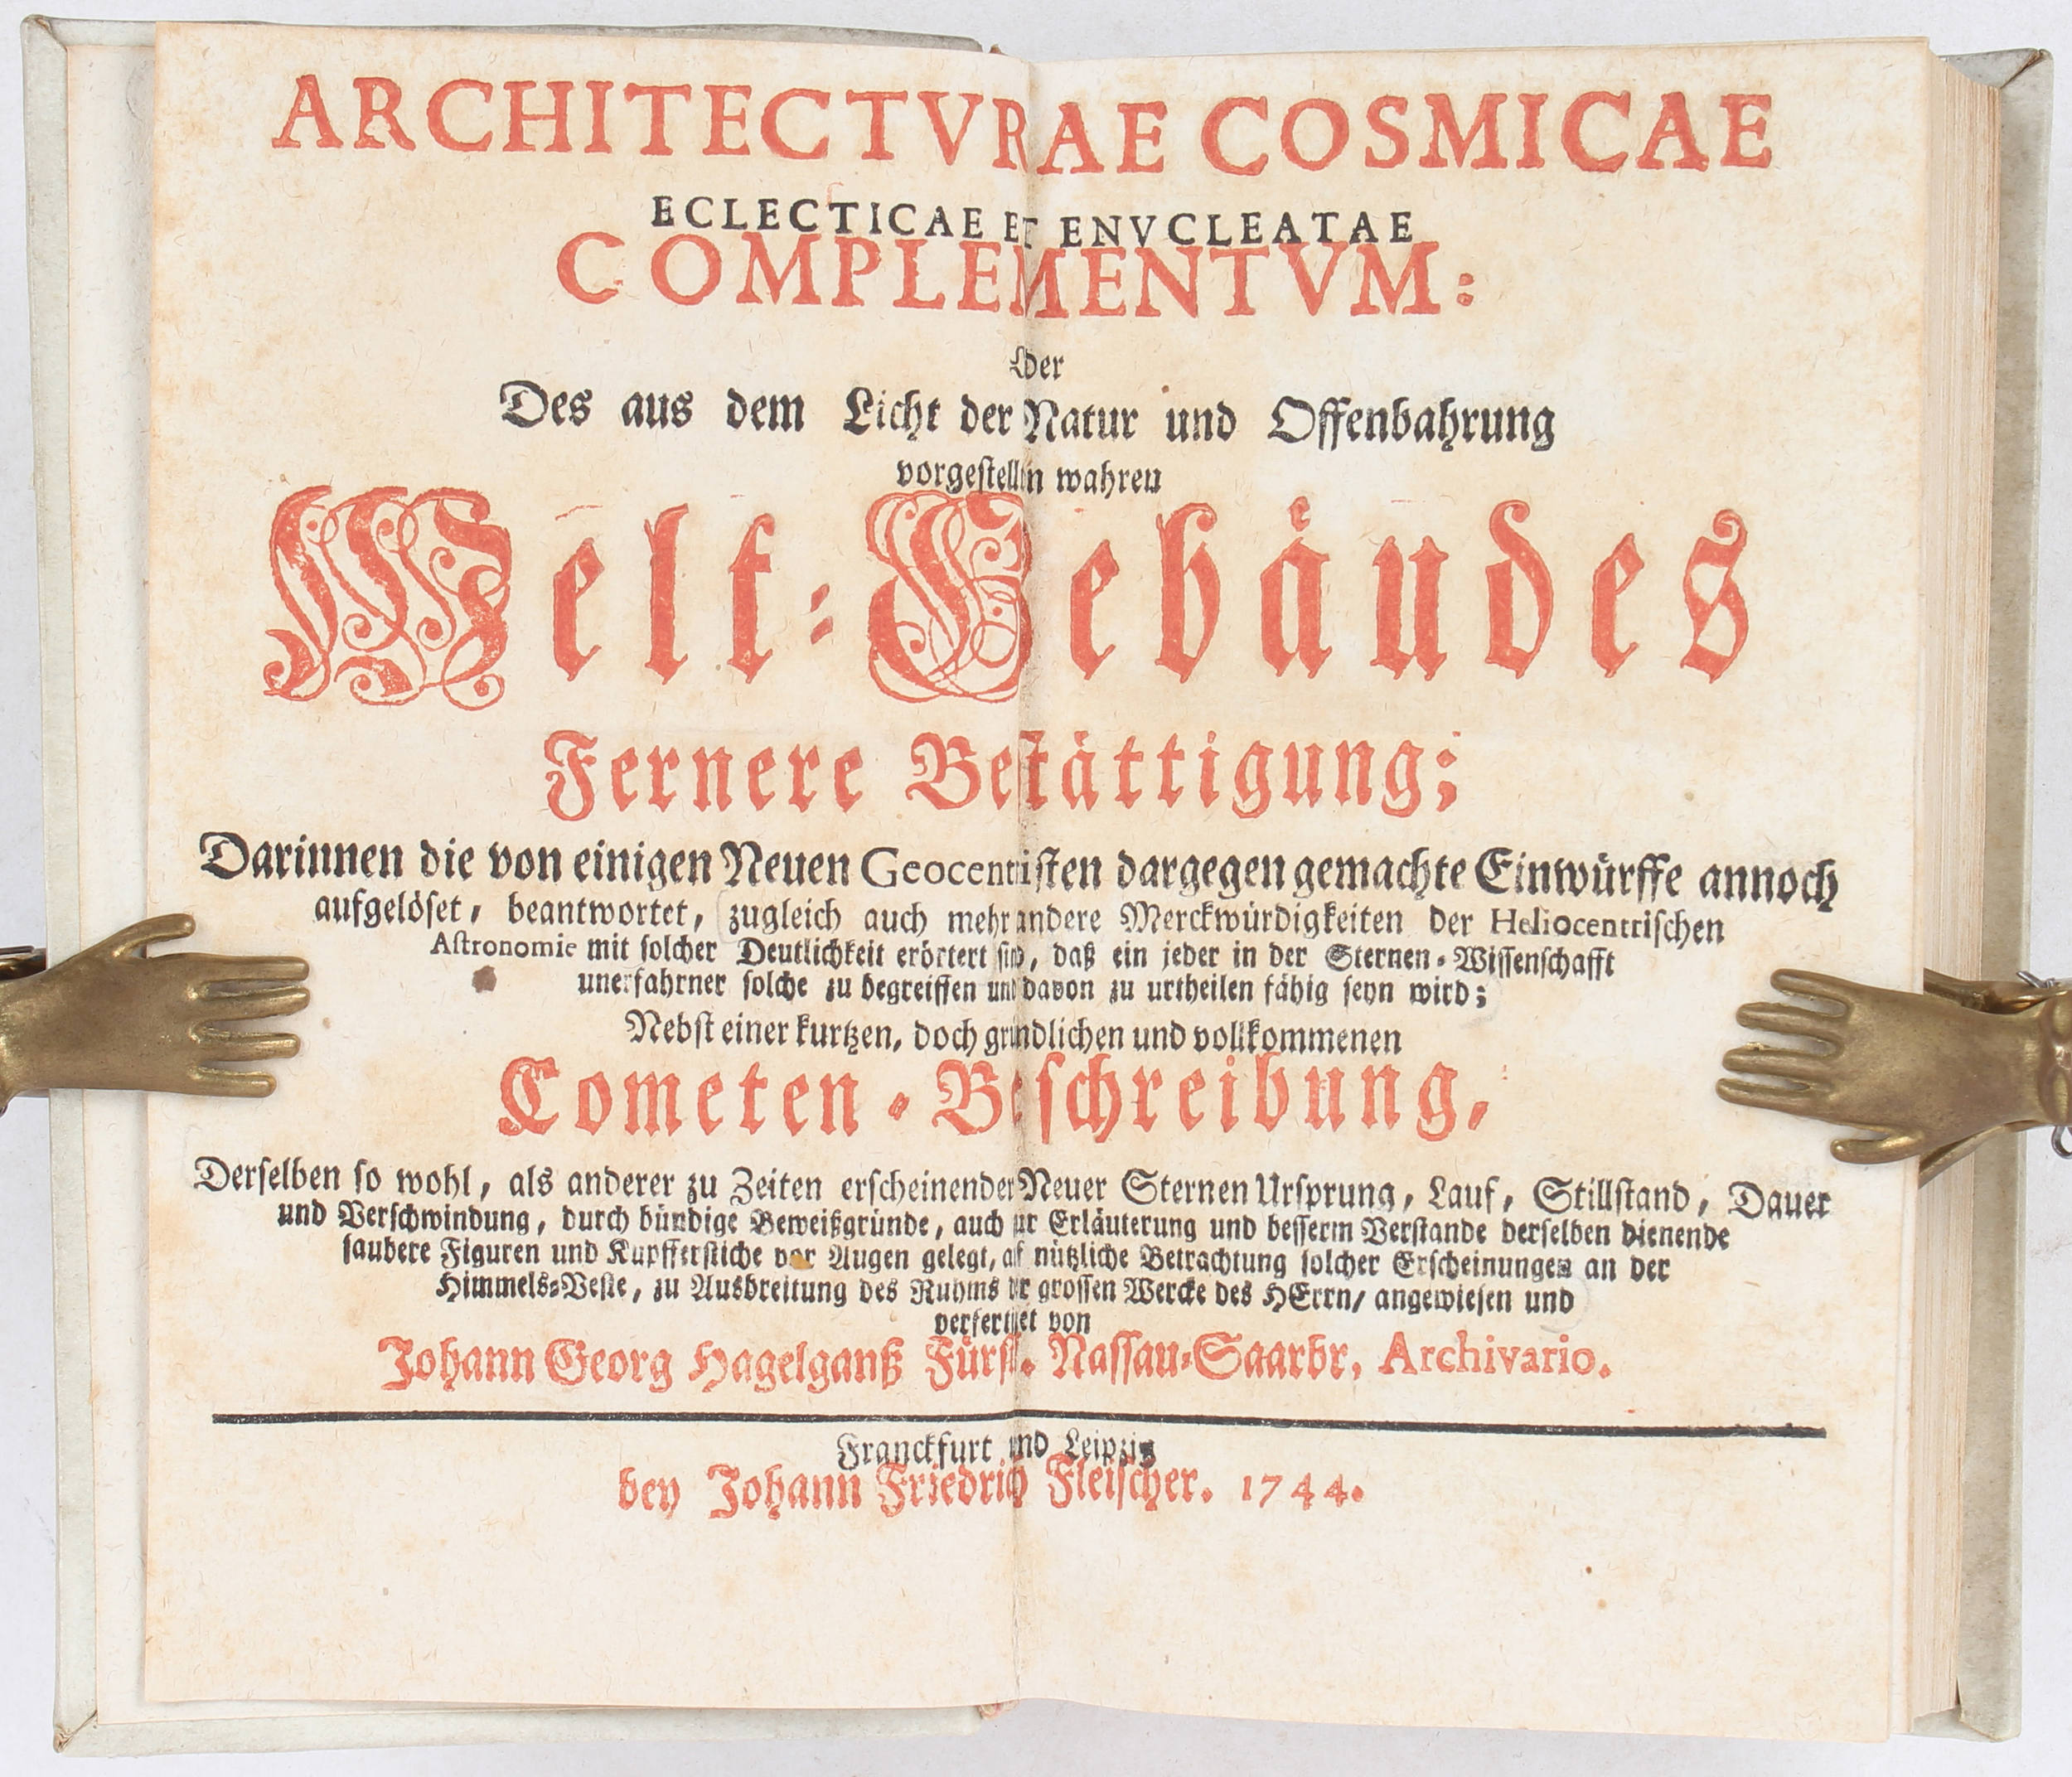 ARCHITECTVRAE COSMICAE
ECLECTICAE ET ENVCLEATAE
COMPLEMENTVM:
Oder
Des aus dem Licht der Natur und Offenbahrung
vorgestellten wahren
Welt-Gebäudes
Fernere Bestättigung;
Darinnen die von einigen Neuen Geocentristen dargegen gemachte Einwürffe annoch
aufgelöset, beantwortet, zugleich auch mehr andere Merckwürdigkeiten der Heliocentrischen
Astronomie mit solcher Deutlichkeit erörtert sind, daß ein jeder in der Sternen-Wissenschafft
unerfahrner solche zu begreiffen und davon zu urtheilen fähig seyn wird;
Nebst einer kurtzen, doch gründlichen und vollkommenen
Cometen-Beschreibung,
Derselben so wohl, als anderer zu Zeiten erscheinender Neuer Sternen Ursprung, Lauf, Stillstand, Dauer
und Verschwindung, durch bündige Beweißgründe, auch zur Erläuterung und besserm Verstande derselben dienende
saubere Figuren und Kupfferstiche vor Augen gelegt, auf nützliche Betrachtung solcher Erscheinungen an der
Himmels-Veste, zu Ausbreitung des Ruhms der grossen Wercke des HErrn/ angewiesen und
verfertiget von
Johann Georg Hagelganß Fürstl. Nassau-Saarbr. Archivario.
Franckfurt und Leipzig
bey Johann Friedrich Fleischer. 1744.